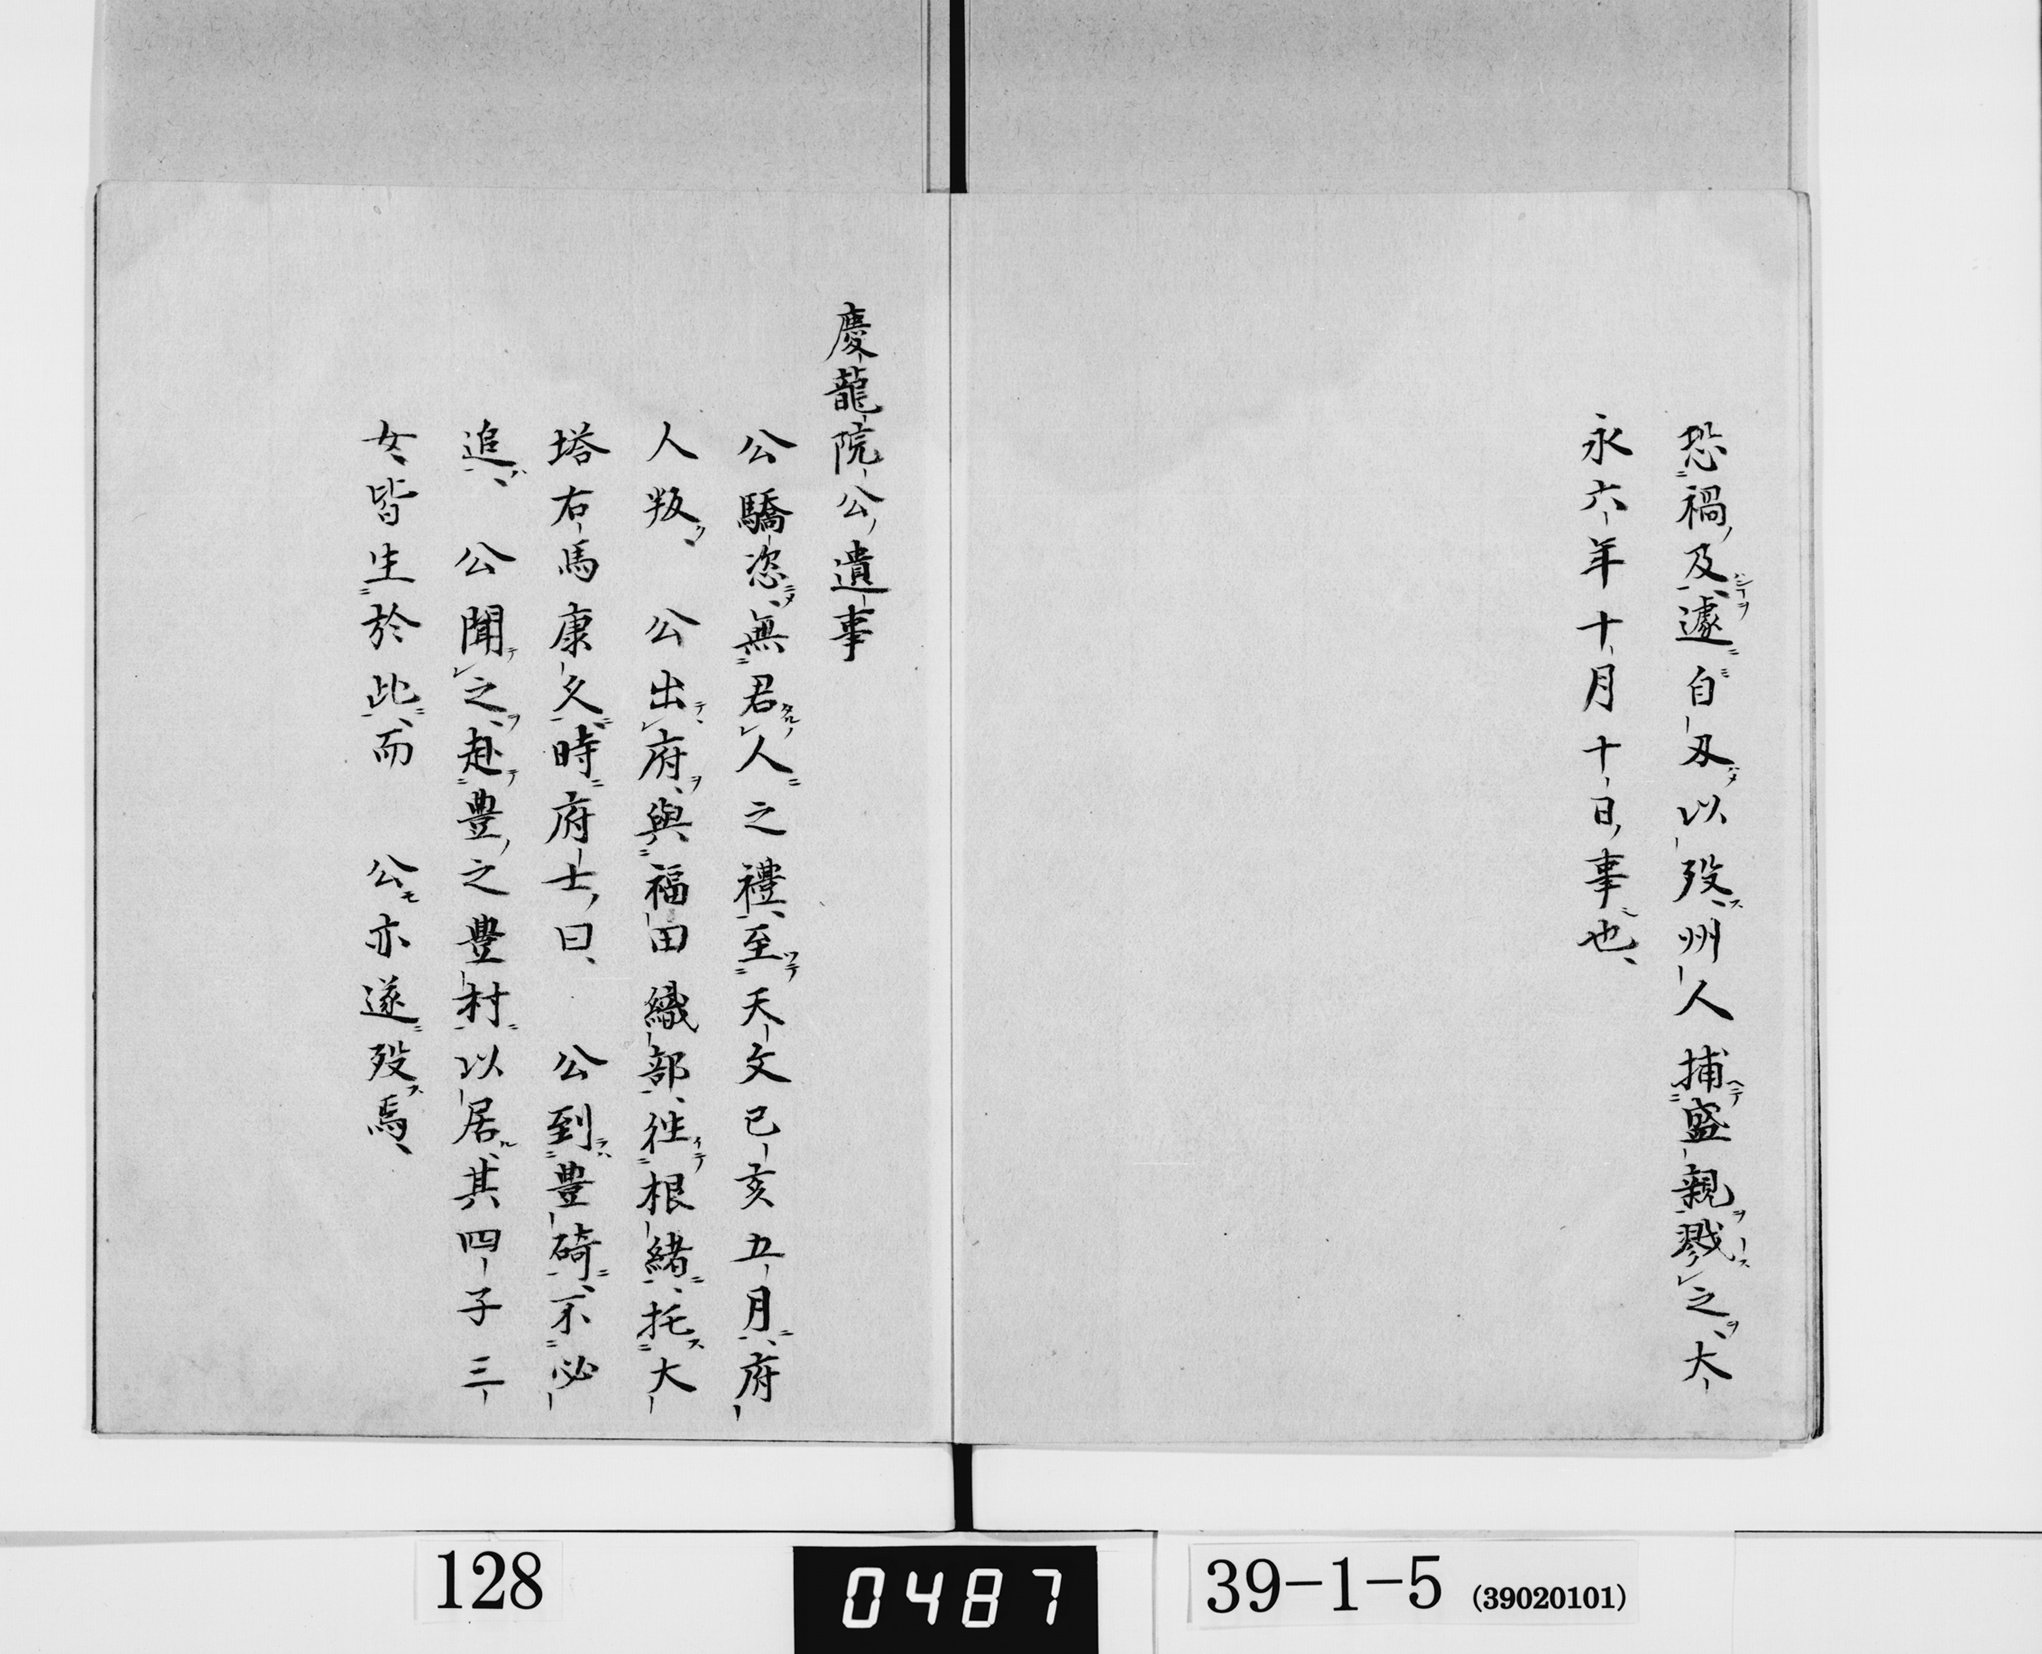 恐禍及遽自刄以歿州人捕盛親戮之大
永六年十月十日事也
慶龍院公遺事
公驕恣無君人之禮至天文己亥五月府
人叛　公出府與福田織部徃根緒托大
塔右馬康久時府士曰　公到豊碕不必
追　公聞之赴豊之豊村以居其四子三
女皆生於此而　公亦遂歿焉
128
0487
39-1-5 (39020101)